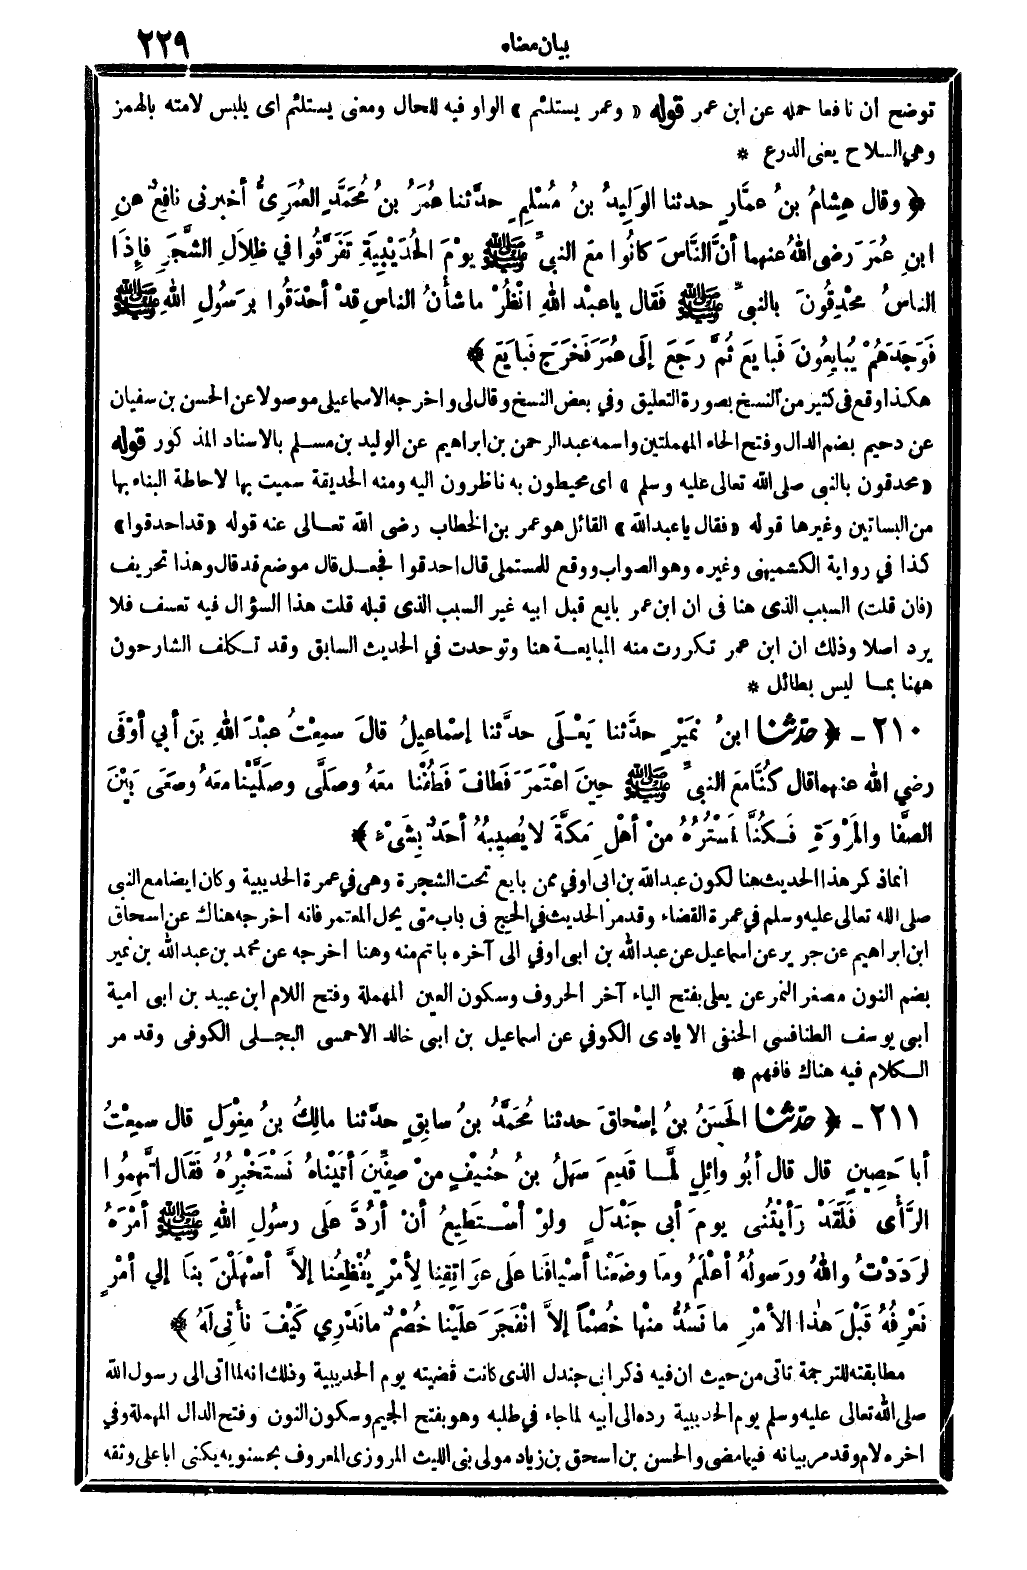 بيان معناه
٢٢٩
توضح ان نافعا حمله عن ابن عمر قوله « وعمر يستلئم » الواو فيه للحال ومعنى يستلئم اى يلبس لامته بالهمز
وهي السلاح يعنى الدرع *
﴿ وقال هِشامُ بنُ عمَّارٍ حدثنا الوَلِيدُ بنُ مُسْلِمٍ حدَّثنا عُمَرُ بنُ مُحَمَّدٍ العُمَرِىُّ أخبرنى نافِعٌ عنِ
ابنِ عُمَرَ رضى اللهُ عنهما أنَّ النَّاسَ كانُوا معَ النبىِّ ﷺ يوْمَ الحُدَيْبِيَةِ تَفَرَّقُوا في ظِلاَلِ الشَّجَرِ فإِذَا
الناسُ مُحْدِقُونَ بالنبىِّ ﷺ فَقال ياعبْد اللهِ انْظُرْ ما شأنُ الناسِ قدْ أحْدَقُوا بِرَسُولِ اللهِ ﷺ
فَوَجَدَهُمْ يُبايِعُونَ فَبايَعَ ثُمَّ رجَعَ إلَى عُمَرَ فَخَرَج فَبايَعَ ﴾
هكذا وقع فى كثير من النسخ بصورة التعليق وفي بعض النسخ وقال لى واخرجه الاسماعيلى موصولا عن الحسن بن سفيان
عن دحيم بضم الدال وفتح الحاء المهملتين واسمه عبد الرحمن بن ابراهيم عن الوليد بن مسلم بالاسناد المذكور قوله
« محدقون بالنبى صلى الله تعالى عليه وسلم » اى محيطون به ناظرون اليه ومنه الحديقة سميت بها لاحاطة البناء بها
من البساتين وغيرها قوله « فقال يا عبد الله » القائل هو عمر بن الخطاب رضى الله تعالى عنه قوله « قد احدقوا »
كذا في رواية الكشميهنى وغيره وهو الصواب ووقع للمستملى قال احدقوا فجعل قال موضع قد قال وهذا تحريف
(فان قلت) السبب الذى هنا فى ان ابن عمر بايع قبل ابيه غير السبب الذى قبله قلت هذا السؤال فيه تعسف فلا
يرد اصلا وذلك ان ابن عمر تكررت منه المبايعة هنا وتوحدت في الحديث السابق وقد تكلف الشارحون
ههنا بما ليس بطائل *
٢١٠ - ﴿ حَدَّثَنَا ابنُ نُمَيْرٍ حدَّثنا يَعْلَى حدَّثنا إسْماعِيلُ قالَ سمِعْتُ عبْدَ اللهِ بنَ أبي أوْفَى
رضي الله عنهما قال كُنَّا معَ النبىِّ ﷺ حِينَ اعْتَمَرَ فَطافَ فَطُفْنا معَهُ وصَلَّى وصَلَّيْنا معَهُ وسَعَى بَيْنَ
الصَّفا والمَرْوَةِ فَكُنَّا نَسْتُرُهُ مِنْ أهْلِ مَكَّةَ لا يُصِيبُهُ أحَدٌ بِشَىْءٍ ﴾
انما ذكر هذا الحديث هنا لكون عبد الله بن ابى اوفي ممن بايع تحت الشجرة وهى في عمرة الحديبية وكان ايضا مع النبى
صلى الله تعالى عليه وسلم في عمرة القضاء وقد مر الحديث في الحج فى باب متى يحل المعتمر فانه اخرجه هناك عن اسحاق
ابن ابراهيم عن جرير عن اسماعيل عن عبد الله بن ابى اوفي الى آخره باتم منه وهنا اخرجه عن محمد بن عبد الله بن نمير
بضم النون مصغر النمر عن يعلى بفتح الياء آخر الحروف وسكون العين المهملة وفتح اللام ابن عبيد بن ابى امية
ابى يوسف الطنافسى الحنفى الايادى الكوفي عن اسماعيل بن ابى خالد الاحمسى البجلى الكوفى وقد مر
الكلام فيه هناك فافهم *
٢١١ - ﴿ حَدَّثَنَا الحَسَنُ بنُ إسْحاقَ حدثنا مُحَمَّدُ بنُ سابِقٍ حدَّثنا مالِكُ بنُ مِغْوَلٍ قال سمِعْتُ
أبا حَصِينٍ قال قال أبُو وائِلٍ لَمَّا قَدِمَ سَهْلُ بنُ حُنَيْفٍ مِنْ صِفِّينَ أتَيْناهُ نَسْتَخْبِرُهُ فَقَال اتَّهِمُوا
الرَّأْىَ فَلَقَدْ رَأيْتُنى يومَ أبى جَنْدَلٍ ولوْ أسْتَطِيعُ أنْ أرُدَّ علَى رسُولِ اللهِ ﷺ أمْرَهُ
لرَدَدْتُ واللهُ ورَسولُهُ أعْلَمُ وما وضَعْنا أسْيافَنا علَى عوَاتِقِنا لِأمْرٍ يُفْظِعُنا إلاَّ أسْهَلْنَ بِنَا إلي أمْرٍ
نَعْرِفُهُ قَبْلَ هٰذَا الأمْرِ ما نَسُدُّ مِنْها خُصْماً إلاَّ انْفَجَرَ علَيْنا خُصْمٌ ما نَدْرِي كَيْفَ نأْتِى لَهُ ﴾
مطابقته للترجمة تاتى من حيث ان فيه ذكر ابى جندل الذى كانت قضيته يوم الحديبية وذلك انه لما اتى الى رسول الله
صلى الله تعالى عليه وسلم يوم الحديبية رده الى ابيه لما جاء في طلبه وهو بفتح الجيم وسكون النون وفتح الدال المهملة وفي
اخره لام وقد مر بيانه فيما مضى والحسن بن اسحق بن زياد مولى بنى الليث المروزى المعروف بحسنويه يكنى ابا على وثقه